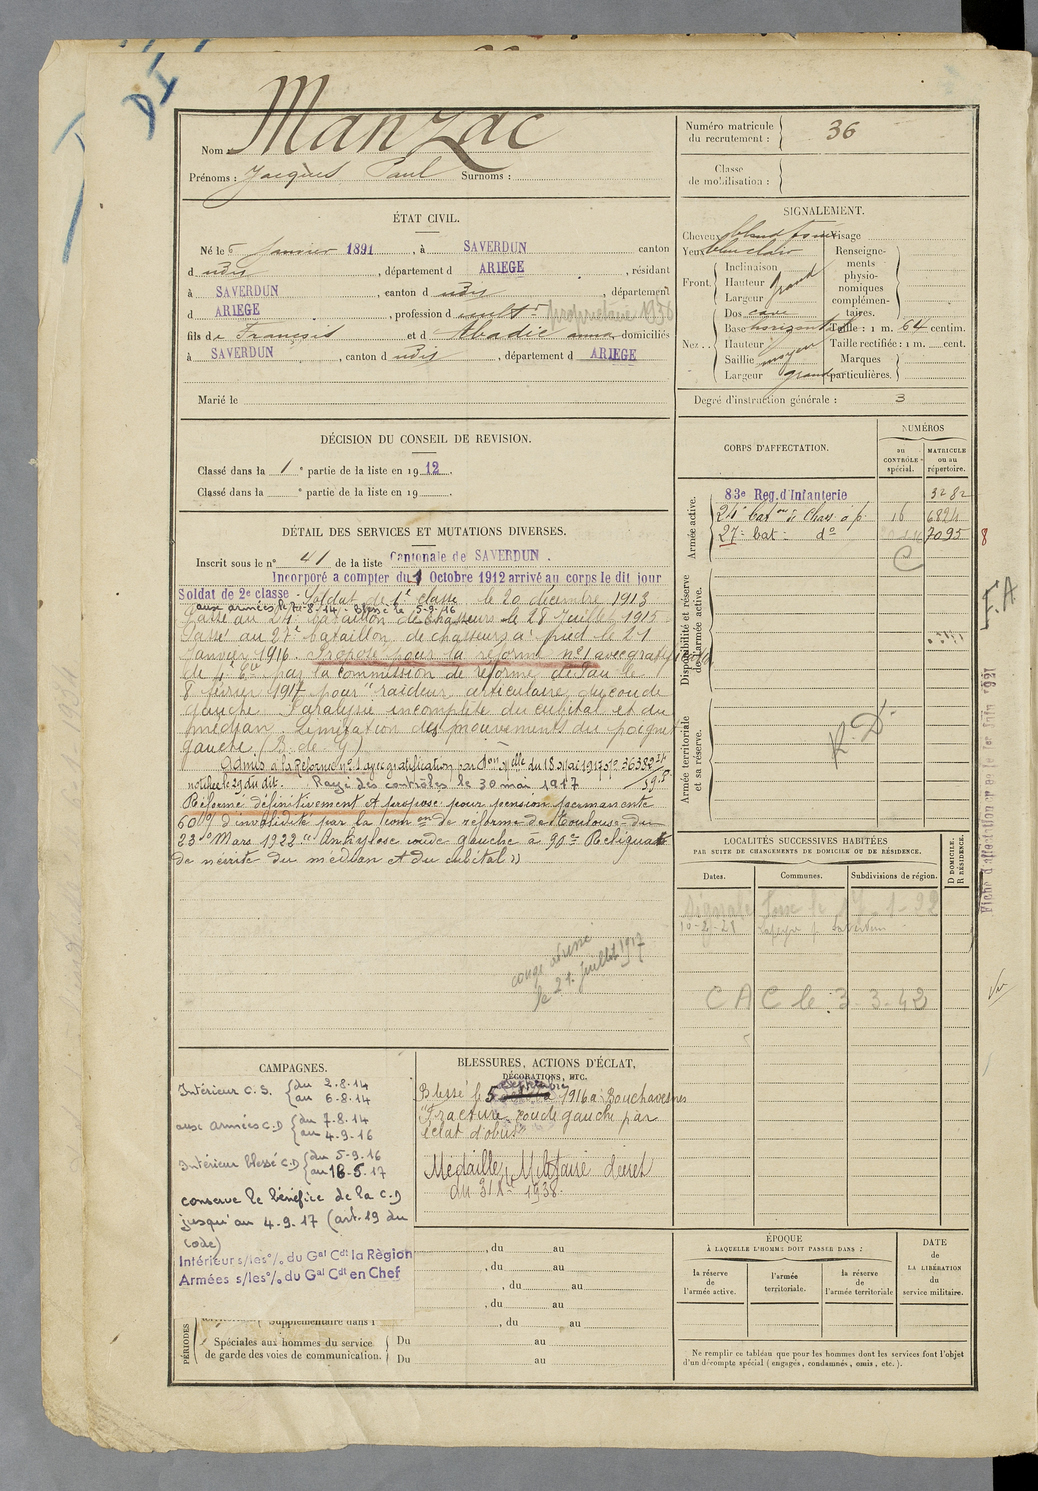 Nom : Manzac
Prénoms : Jacques Paul Surnoms :
Numéro matricule du recrutement : 36
Classe de mobilisation :
ÉTAT CIVIL.
Né le 6 Janvier 1891, à SAVERDUN canton
d udit, département d ARIEGE, résidant
à SAVERDUN, canton d udit, département
d ARIEGE, profession d cult.r propriétaire
fils de François et d Abadie Anna domiciliés
à SAVERDUN, canton d udit, département d ARIEGE
Marié le
SIGNALEMENT.
Cheveux blond foncé Visage
Yeux bleu clair
Front. Inclinaison
Hauteur grand
Largeur
Nez.. Dos cave
Base horizontale
Hauteur
Saillie moyen
Largeur grand
Renseignements physionomiques complémentaires.
Taille : 1 m. 64 centim.
Taille rectifiée : 1 m. cent.
Marques particulières.
Degré d'instruction générale : 3
DÉCISION DU CONSEIL DE REVISION.
Classé dans la 1e partie de la liste en 1912.
Classé dans la e partie de la liste en 19
DÉTAIL DES SERVICES ET MUTATIONS DIVERSES.
Inscrit sous le n° 41 de la liste Cantonale de SAVERDUN.
Incorporé à compter du 1 Octobre 1912 arrivé au corps le dit jour
Soldat de 2e classe. Soldat de 1e classe le 20 décembre 1913
aux armées le 7-8-14. Blessé le 5-9-16
Passé au 24e bataillon de chasseurs le 28 Juillet 1915
Passé au 27e bataillon de chasseurs à pied le 21
Janvier 1916. Proposé pour la réforme n°1 avec gratif
de 4e C.ie par la commission de réforme de Pau le
8 février 1917 pour "raideur articulaire du coude
gauche. Paralysie incomplète du cubital et du
médian. Limitation des mouvements du poignet
gauche (B. de G)
Admis à la Réforme n°1 avec gratification par du 18 Mai 1917
notifiée le 29 du dit. Rayé des contrôles le 30 mai 1917
Réformé définitivement et proposé pour pension permanente
60% d'invalidité par la Com.on de réforme de Toulouse du
23 Mars 1922 "Ankylose coude gauche à 90° Reliquat
de névrite du médian et du cubital"
le 21 Juillet 1917
CORPS D'AFFECTATION.
NUMÉROS
au CONTRÔLE spécial.
MATRICULE ou au répertoire.
Armée active.
83e Reg.d'Infanterie 3282
24e bat.on de Chass. à p. 16 6824
27e bat.on d° 7095
C
8
Disponibilité et réserve de l'armée active.
Armée territoriale et sa réserve.
R. D.
F. A
LOCALITÉS SUCCESSIVES HABITÉES
PAR SUITE DE CHANGEMENTS DE DOMICILE OU DE RÉSIDENCE.
Dates. Communes. Subdivisions de région. D DOMICILE. R RÉSIDENCE.
C A C le 3-3-42
CAMPAGNES.
Intérieur C.S. du 2.8.14
au 6.8.14
aux Armées C.D du 7.8.14
au 4.9.16
Intérieur blessé C.D du 5-9-16
au 18.5.17
conserve le bénéfice de la C.D
jusqu'au 4.9.17 (art. 19 du
Code)
Intérieur s/les °/. du Gal Cdt la Région
Armées s/les °/. du Gal Cdt en Chef
BLESSURES, ACTIONS D'ÉCLAT,
DÉCORATIONS, ETC.
Blessé le 5 septembre 1916 à Bouchavesnes
"Fracture coude gauche par
éclat d'obus"
Médaille Militaire décret
du 31 Xbre 1938.
, du au
, du au
, du au
, du au
Supplémentaire dans l , du au
PÉRIODES
Spéciales aux hommes du service Du au
de garde des voies de communication. Du au
ÉPOQUE
À LAQUELLE L'HOMME DOIT PASSER DANS :
la réserve de l'armée active.
l'armée territoriale.
la réserve de l'armée territoriale
DATE de LA LIBÉRATION du service militaire.
Ne remplir ce tableau que pour les hommes dont les services font l'objet
d'un décompte spécial (engagés, condamnés, omis, etc.).